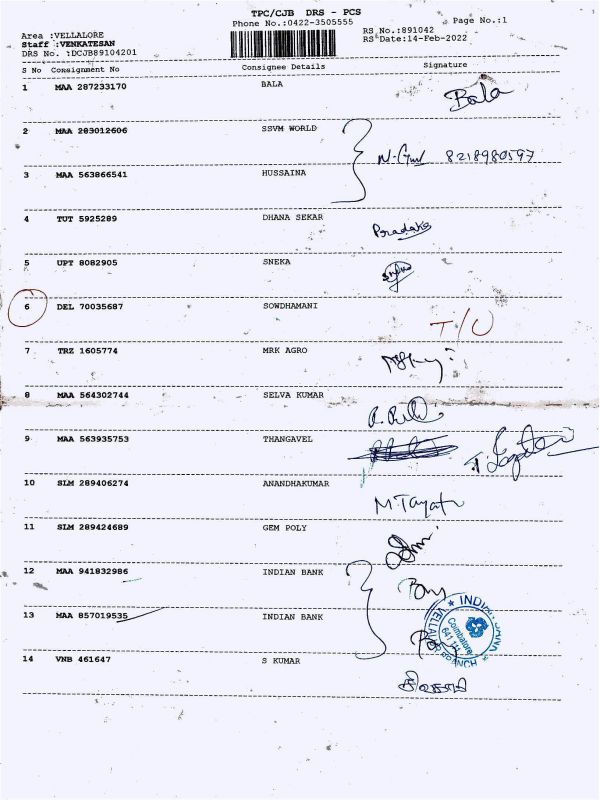 TPC/CJB DRS - PCS
Phone No.:0422-3505555 Page No.:1
Area :VELLALORE RS No.:891042
Staff :VENKATESAN RS Date:14-Feb-2022
DRS No. :DCJB89104201
S No Consignment No Consignee Details Signature
1 MAA 287233170 BALA Bala
2 MAA 283012606 SSVM WORLD
8218980597
3 MAA 563866541 HUSSAINA
4 TUT 5925289 DHANA SEKAR
5 UPT 8082905 SNEKA
6 DEL 70035687 SOWDHAMANI T/U
7 TRZ 1605774 MRK AGRO
8 MAA 564302744 SELVA KUMAR
9 MAA 563935753 THANGAVEL
10 SLM 289406274 ANANDHAKUMAR
11 SLM 289424689 GEM POLY
12 MAA 941832986 INDIAN BANK
13 MAA 857019535 INDIAN BANK
VELLALORE BRANCH
Coimbatore
641 111
14 VNB 461647 S KUMAR